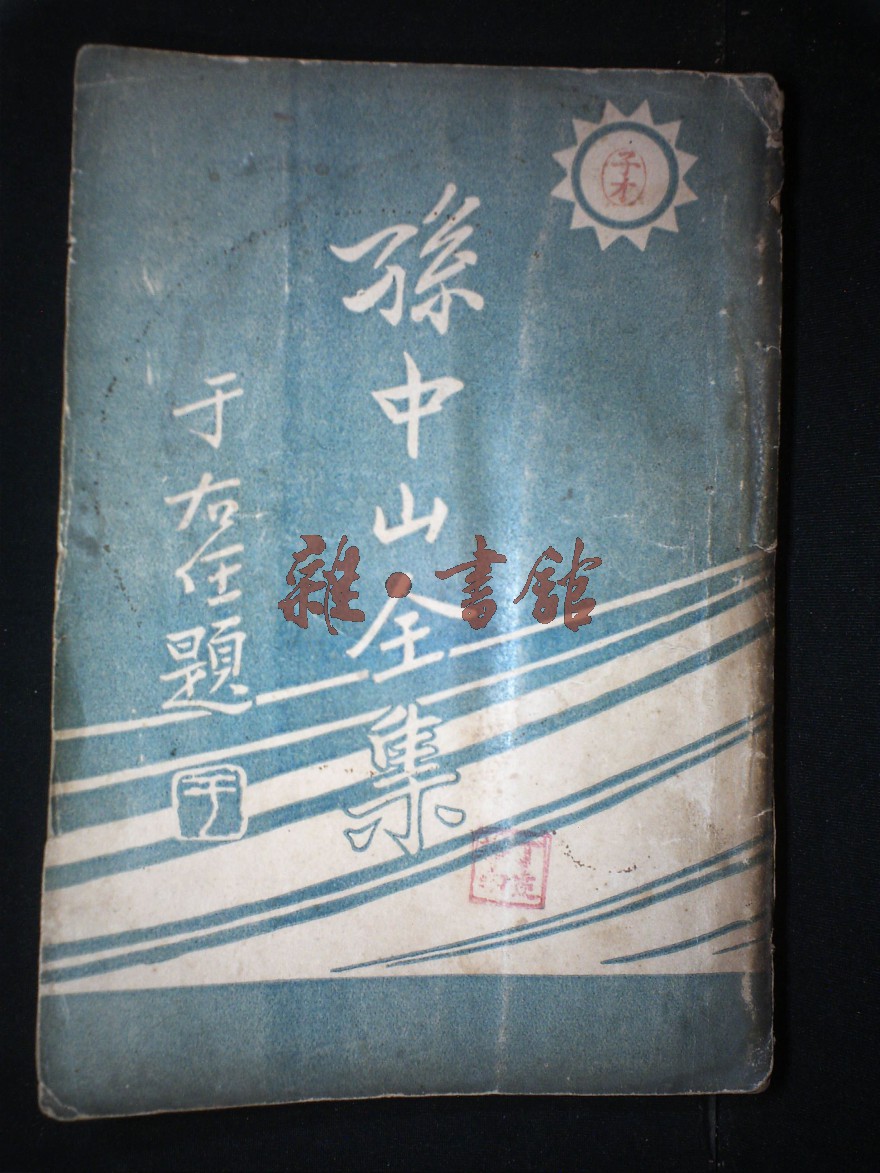 孫中山全集
于右任題
雜·書館